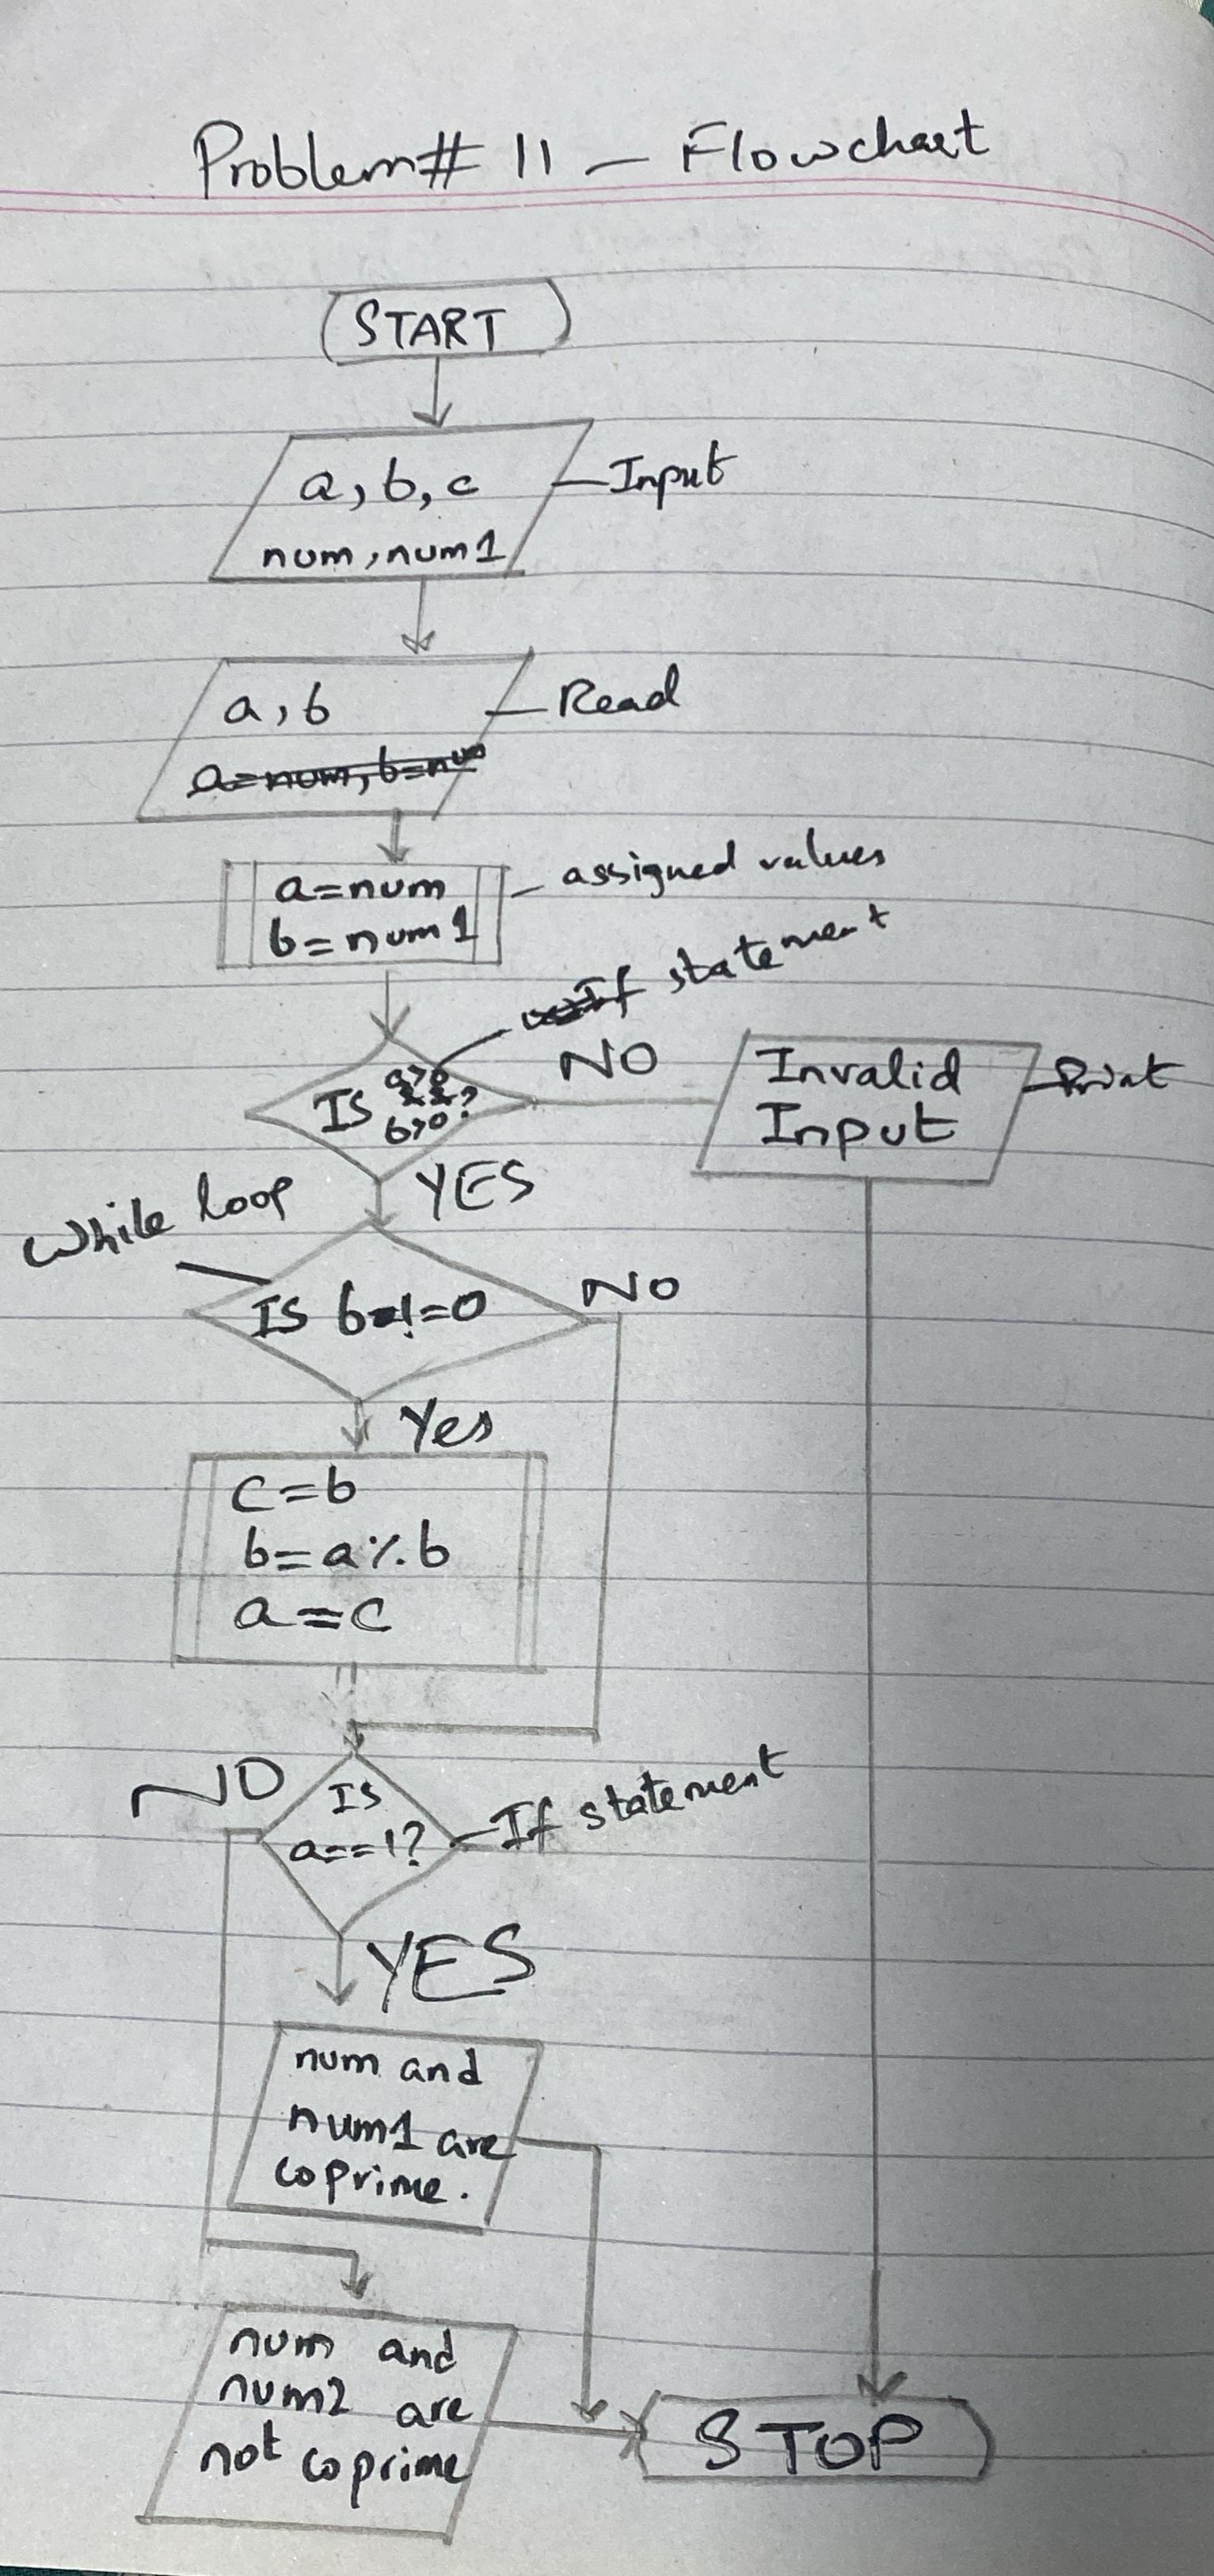 Problem# 11 – Flowchart
START
a, b, c
num, num1
Input
a, b
a=num, b=num
Read
a=num
b=num1
assigned values
If statement
Is a>0 && b>0?
NO
Invalid
Input
Print
YES
While loop
Is b!=0
NO
Yes
c=b
b=a%b
a=c
NO
Is
a==1?
If statement
YES
num and
num1 are
coprime.
num and
num2 are
not coprime
STOP